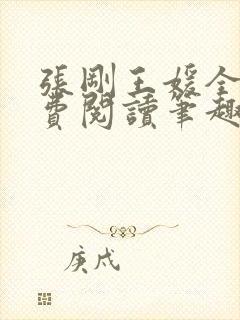 張剛王媛全
費閱讀筆趣
庚戍